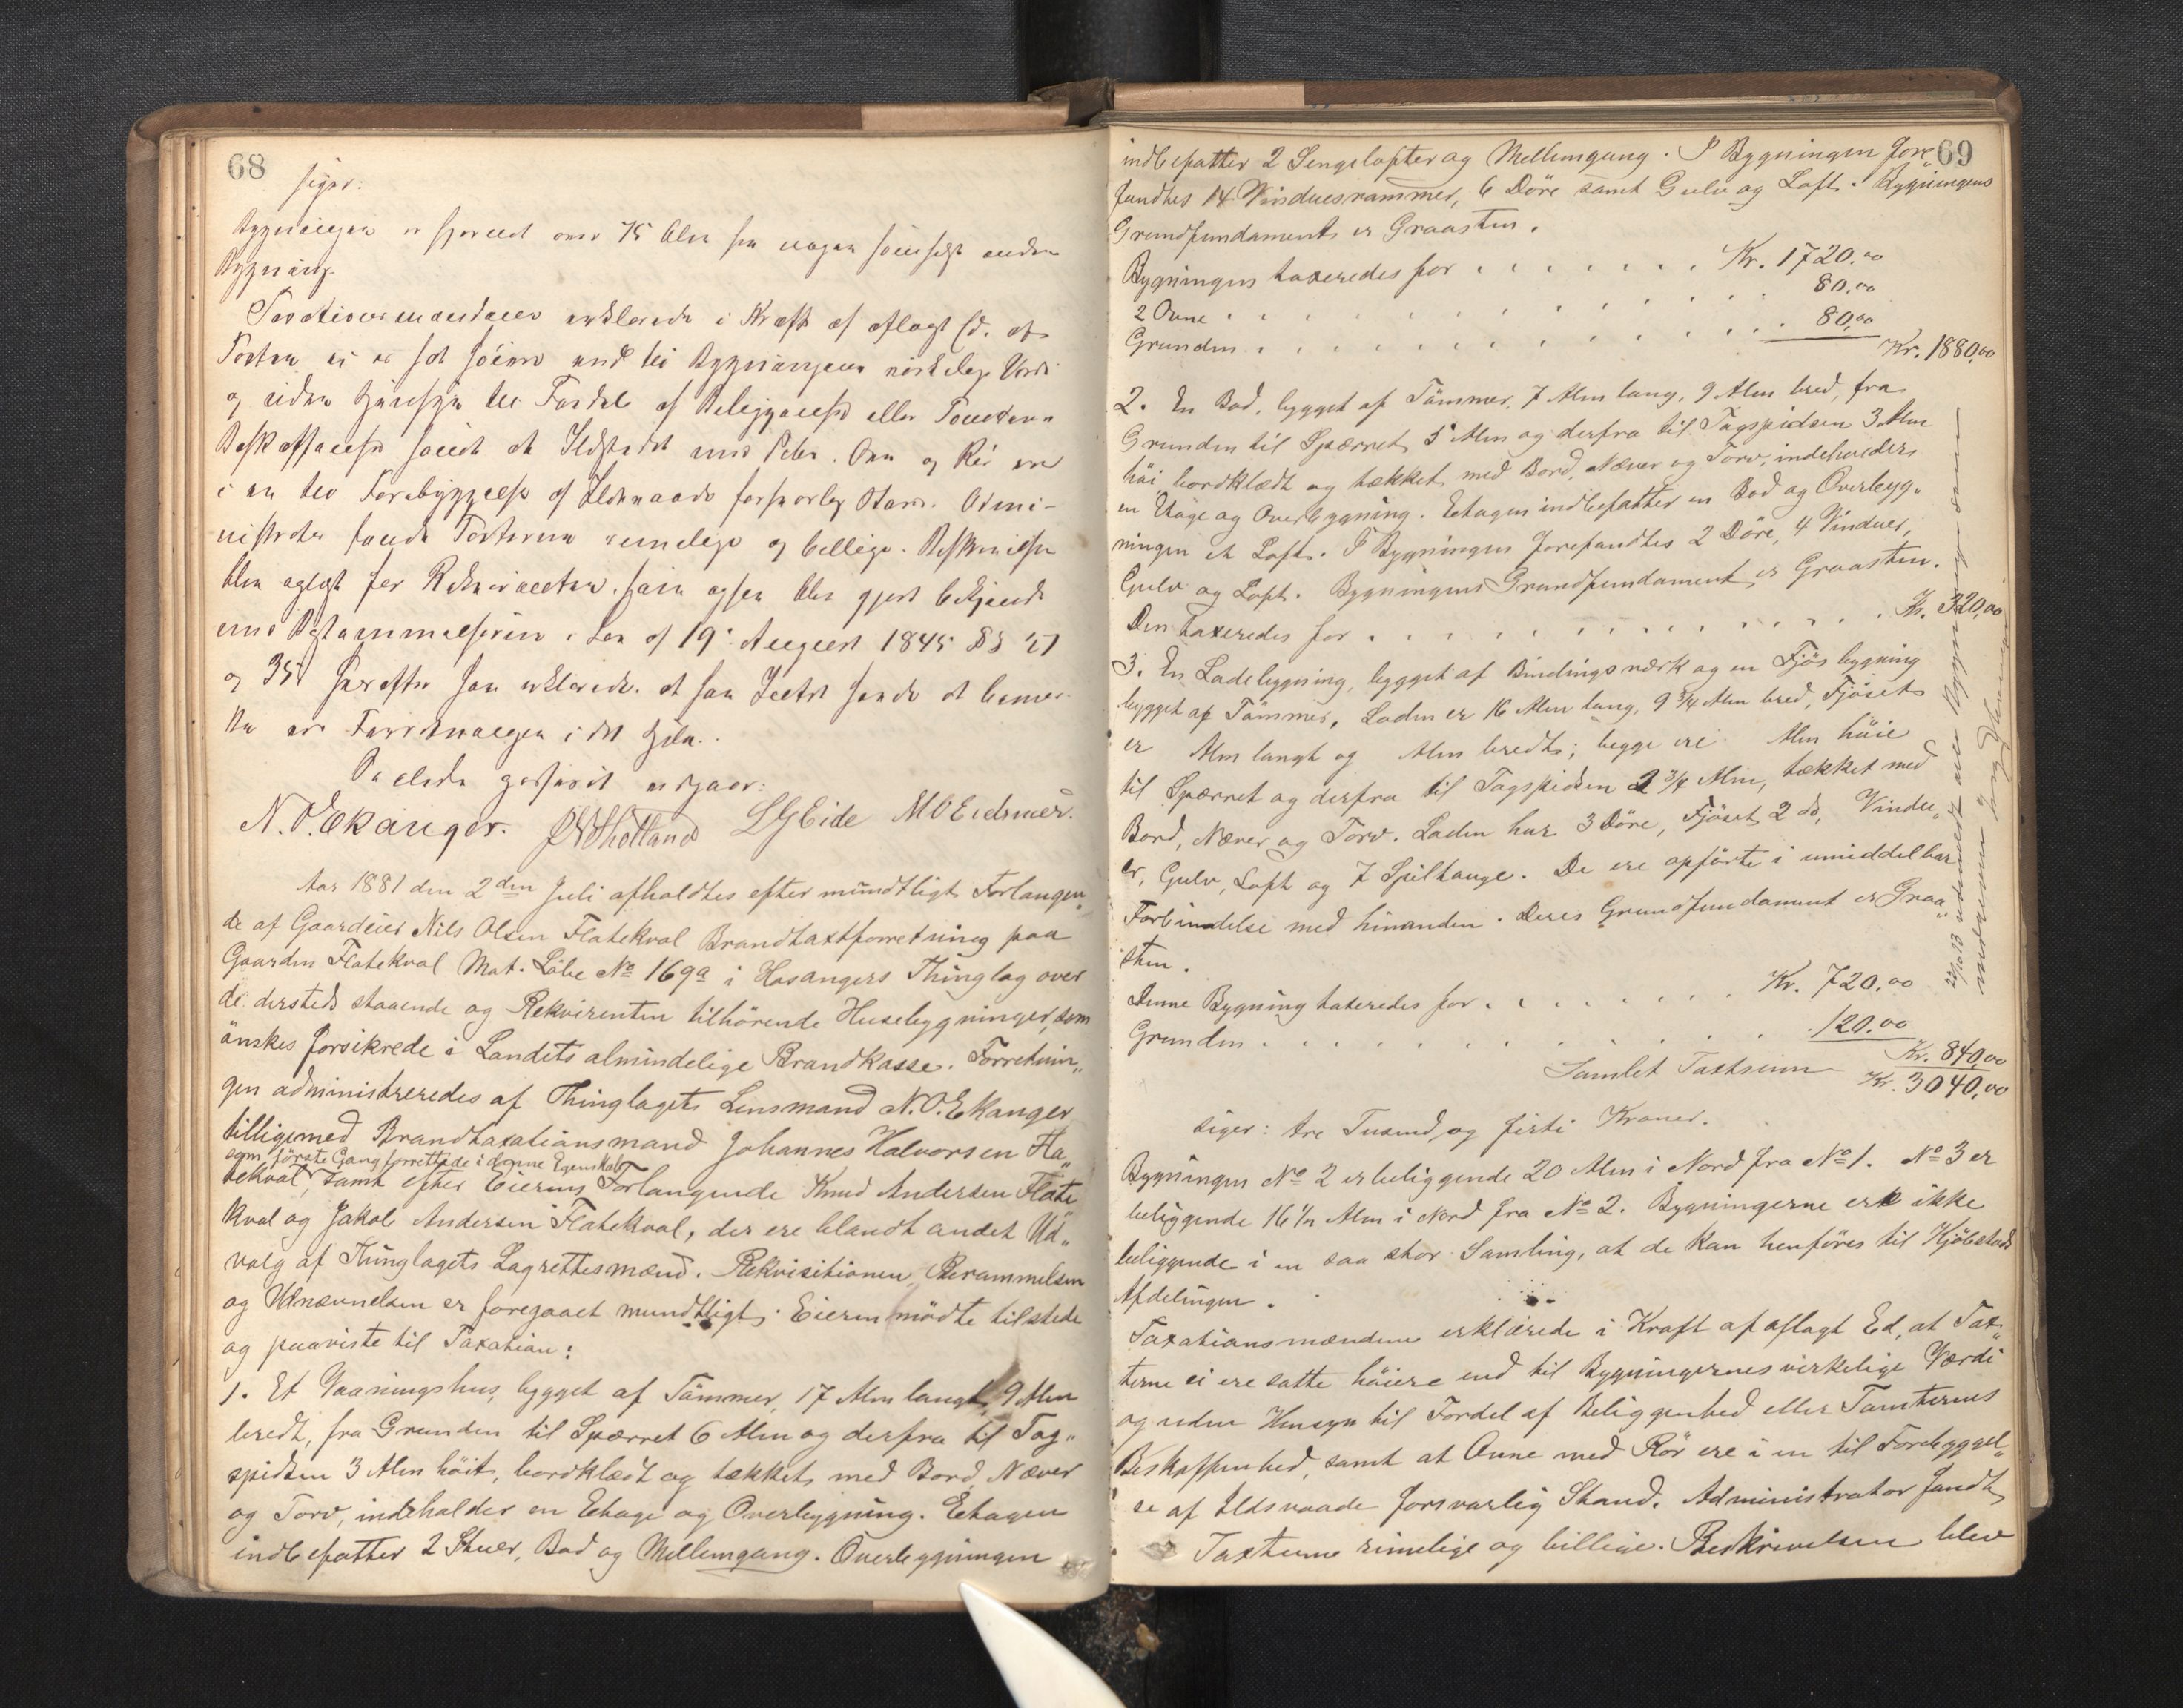 68
siger:
Bygningen er fjernet over 75 Alen fra nogen somhelst anden
Bygning.
Taxationsmændene erklærede i Kraft af aflagt Ed. at
Taxten ei er sat høiere end til Bygningens virkelige Værdi
og uden Hensyn til Fordel af Beliggenhed eller Tomtens
Beskaffenhed samt at Ildstedet med Piber. Ovn og Rör ere
i en til Forebyggelse af Ildsvaade forsvarlig Stand. Admi-
nistrator fandt Taxterne rimelige og billige. Beskrivelsen
blev oplæst for Rekvirenten, som ogsaa blev gjort bekjendt
med Bestemmelserne i Lov af 19de August 1845 §§ 27
og 35 hvorefter han erklærede, at han Intet havde at bemær-
ke ved Forretningen i det Hele.
Saaledes passeret vidner:
N. O. Ekanger. LGEide MOEidsnes.
Aar 1881 den 2den Juli afholdtes efter mundtligt Forlangen„
de af Gaardeier Nils Olsen Flatekval Brandtaxtforretning paa
Gaarden Flatekval Mat. Löbe No 169a i Hosangers Thinglag over
de dersteds staaende og Rekvirenten tilhörende Husebygninger, som
önskes forsikrede i Landets almindelige Brandkasse. Forretnin„
gen administreredes af Thinglagets Lensmand N. O. Ekanger
tilligemed Brandtaxationsmand Johannes Halvorsen Fla„
som förste Gang forrettede i denne Egenskab
tekval, samt efter Eierens Forlangende Knud Andersen Flate
kval og Jakob Andersen Flatekval, der ere blandt andet Ud„
valg af Thinglagets Lagrettesmænd. Rekvisitionen, Berammelsen
og Udnævnelsen er foregaaet mundtligt. Eieren mödte tilstede
og paaviste til Taxation:
1. Et Vaaningshus, bygget af Tömmer, 17 Alen langt, 9 Alen
bredt, fra Grunden til Spærret 6 Alen og derfra til Tag„
spidsen 3 Alen höit, bordklædt og tækket med Bord, Næver
og Torv, indeholder en Etage og Overbygning. Etagen
indbefatter 2 Stuer, Bod og Mellemgang. Overbygningen
69
indbefatter 2 Sengelofter og Mellemgang. I Bygningen fore„
fandtes 14 Vinduesrammer, 6 Döre samt Gulv og Loft. Bygningens
Grundfundament er Graasten.
Bygningen taxeredes for . . . . . . . Kr. 1720.00
2 Ovne . . . . . . . . . . . 80.00
Grunden . . . . . . . . . . . 80,00
Kr. 1880,00
2. En Bod, bygget af Tömmer, 7 Alen lang, 9 Alen bred, fra
Grunden til Spærret 5 Alen og derfra til Tagspidsen 3 Alen
höi bordklædt og tækket med Bord, Næver og Torv, indeholder
en Etage og Overbygning. Etagen indbefatter en Bod og Overbyg„
ningen et Loft. I Bygningen forefandtes 2 Döre, 4 Vinduer,
Gulv og Loft. Bygningens Grundfundament er Graasten.
Den taxeredes for . . . . . . . . . . . Kr. 320,00
3. En Ladebygning, bygget af Bindingsværk og en Fjösbygning
bygget af Tömmer, Laden er 16 Alen lang, 9 3/4 Alen bred, Fjöset
er Alen langt og Alen bredt; begge ere Alen höie
til Spærret og derfra til Tagspidsen 2 3/4 Alen, tækket med
Bord, Næver og Torv. Laden har 3 Döre, Fjöset 2 do, Vindu„
er, Gulv, Loft og 7 Spiltauge. De ere opförte i umiddelbar
Forbindelse med hinanden. Deres Grundfundament er Graa„
sten.
Denne Bygning taxeredes for . . . . . . . Kr. 720.00
Grunden . . . . . . . . . . . 120.00
Kr. 840,00
Samlet Taxtsum Kr. 3040,00
siger: tre Tusind og firti Kroner.
Bygningen No 2 er beliggende 20 Alen i Nord fra No 1. No 3 er
beliggende 16 1/2 Alen i Nord fra No 2. Bygningerne ere ikke
beliggende i en saa stor Samling, at de kan henföres til Kjöbstads
Afdelingen.
Taxationsmændene erklærede i Kraft af aflagt Ed, at Tax„
terne ei ere satte höiere end til Bygningernes virkelige Værdi
og uden Hensyn til Fordel af Beliggenhed eller Tomternes
Beskaffenhed, samt at Ovne med Rör ere i en til Forebyggel„
se af Ildsvaade forsvarlig Stand. Administrator fandt
Taxterne rimelige og billige. Beskrivelsen blev